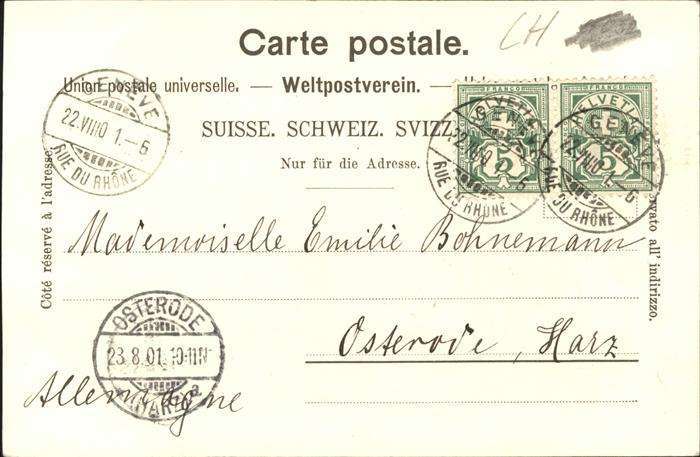 Carte postale.
CH
Union postale universelle. — Weltpostverein. —
SUISSE. SCHWEIZ. SVIZZ
Nur für die Adresse.
Côté réservé à l'adresse.
GENÈVE
22.VIII01.-6
RUE DU RHÔNE
FRANCO
HELVETIA
5
GENÈVE
22.VIII01.-6
RUE DU RHÔNE
FRANCO
HELVETIA
5
GENÈVE
22.VIII01.-6
RUE DU RHÔNE
all' indirizzo.
Mademoiselle Emilie Bohnemann
Osterode, Harz
Allemagne
OSTERODE
23.8.01.10-11N
(HARZ) a